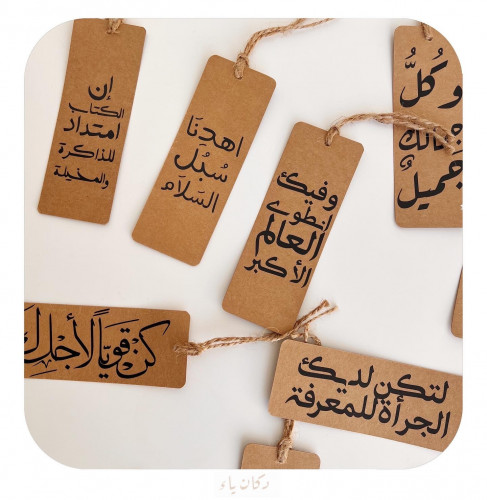 إن
الكتاب
امتداد
للذاكرة
والمخيلة
اهدِنَا
سُبُل
السَلَام
وفيك
انطوى
العالم
الأكبر
وكُلُّ
جَميلٌ
كن قويًا لأجلك
لتكن لديك
الجرأة للمعرفة
دكان ياء